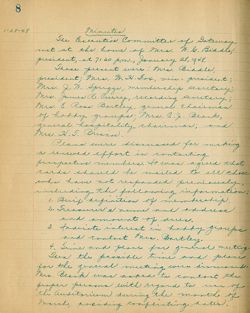 8
1-28-48
Minutes
The Executive Committee of Gateway
met at the home of Mrs. W. G. Biddle,
president, at 7:30 p.m., January 28, 1948.
Those present were Mrs. Biddle,
president; Mrs. W. H. Fox, vice-president;
Mrs. J. W. Spriggs, membership secretary;
Mrs. James R. Avery, recording secretary;
Mrs. E. Ross Bartley, general chairman
of hobby groups; Mrs. E. J. Beals,
general hospitality chairman; and
Mrs. H. T.
Plans were discussed for making
a second effort in contacting
prospective members. It was agreed that
cards should be mailed to all those
who have not responded previously,
including the following information:
1. Brief definition of membership.
2. Treasurer's name and address
and amount of dues.
3. Indicate interest in hobby groups
and contact Mrs. Bartley.
4. Time and place for general meeting.
the possible time and place
for the general meeting were discussed.
Mrs. was asked to contact the
proper persons with regard to use of
the auditorium during the month of
March, avoiding conflicting dates.